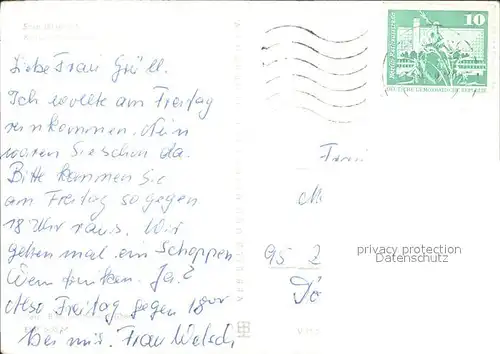 Liebe Frau Grüll.
Ich wollte am Freitag
reinkommen. Nein
waren Sie schon da.
Bitte kommen Sie
am Freitag so gegen
18 Uhr raus. Wir
gehen mal ein Schoppen
Wein trinken. Ja?
Also Freitag gegen 18 oor
bei mir. Frau Welsch
10
DEUTSCHE DEMOKRATISCHE REPUBLIK
Frau
M
95 Z
privacy protection
Datenschutz